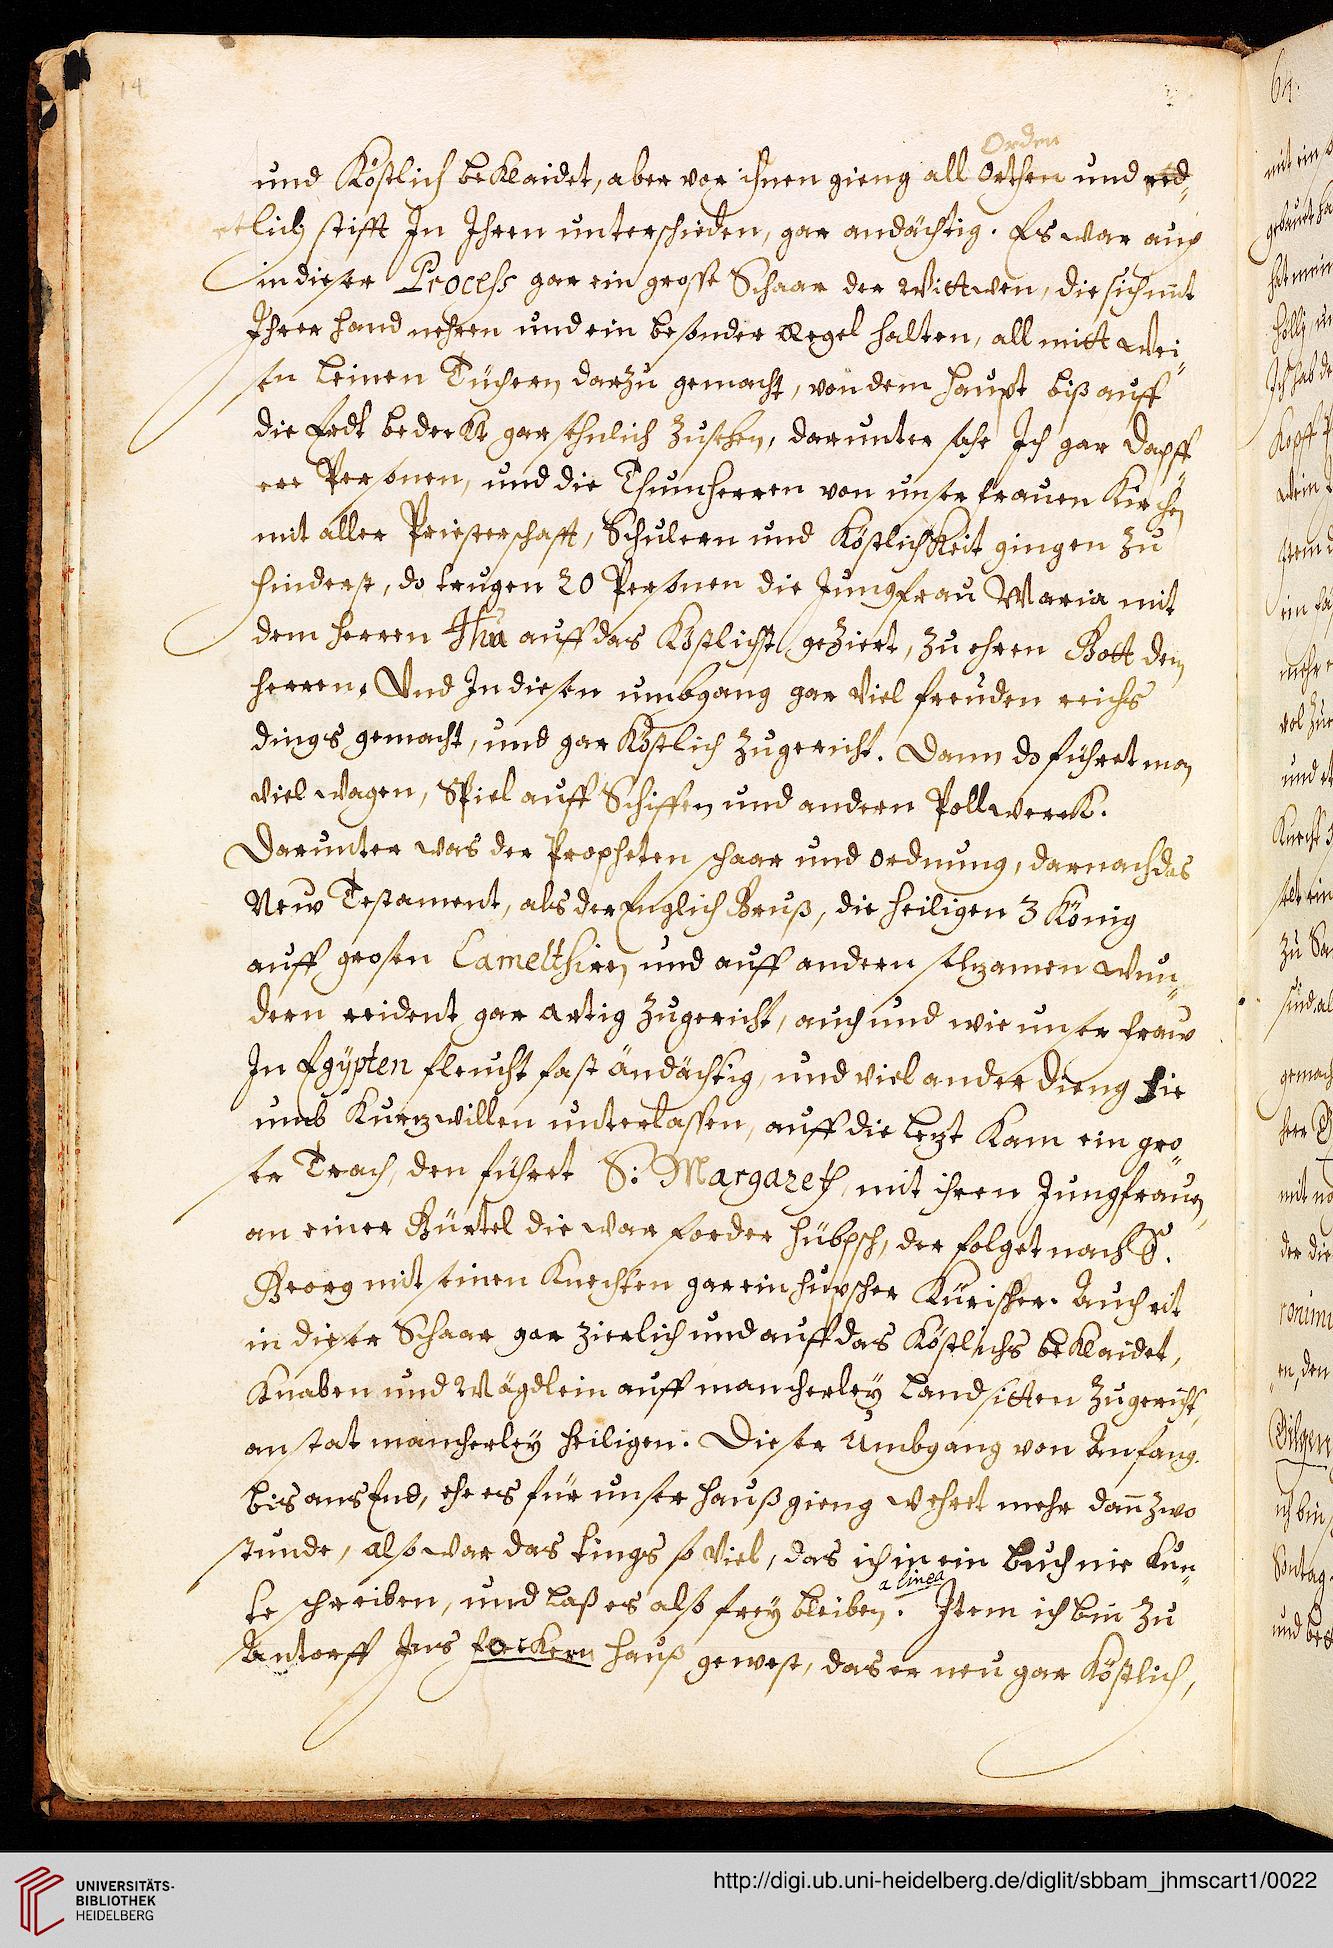 14
Orden
und Köstlich beKlaidet, aber vor ihnen gieng all Orthen und red-
etlich stifft In Ihren unterschieden, gar andächtig. Es war auch
in dieser Process gar ein grosse Schaar der Wittwen, die sich mit
Ihrer hand nehren und ein besonder Regel halten, all mitt wei-
sen leinen Tüchern darzu gemacht, von dem haupt biß auff
die Erdt bedeckt gar sehnlich zusehen, darunter sahe Ich gar dapff-
ere Personen, und die Thumherren von unser frauen Kirchen
mit aller Priesterschafft, Schulern und KöstlichKeit gingen zu
hinderst, do trugen 20 Personen die Jungfrau Maria mit
dem herren Jhu auff das Köstlichst geziert, zu ehren Gott dem
herren. Und In diesen umbgang gar viel freuden reichs
dings gemacht, und gar Köstlich zugericht. Dann do führet man
viel wagen, Spiel auff Schiffen und andern Pollwerck.
Darunter was der Propheten schaar und ordnung, darnach das
New Testament, als der Englisch Gruß, die heiligen 3 König
auff grosen Camelthiren und auff andern selzamen wun-
dern reident gar artig zugericht, auch und wie unser fraw
In Egÿpten fleucht fast andächtig, und viel ander dieng hie
umb Kurzwillen unterlassen, auff die lezt Kam ein gro-
ser Trach, den führet S: Margareth, mit ihren Jungfrauen
an einer Gürtel die war forder hübsch, der folget nach S.
Georg mit seinen Knechten gar ein hupscher Kürisser. Auch rit
in dieser Schaar gar zierlich und auff das Köstlichs beKlaidet,
Knaben und Mägdlein auff mancherleÿ Landsitten zugericht,
an stat mancherleÿ heiligen. Dieser Umbgang von Anfang
bis ans End, ehe es für unser hauß gieng wehret mehr dann zwo
stunde, also war das dings so viel, das ich in ein buch nie Kun-
te schreiben, und laß es also freÿ bleiben. Item ich bin zu
a linea
Antorff Ins fockern hauß gewest, das er neu gar Köstlich,
64.
mit ein
Kopff
mehr
und
zu
gemach
mit
der die
en, den
Sontag
und
UNIVERSITÄTS-
BIBLIOTHEK
HEIDELBERG
http://digi.ub.uni-heidelberg.de/diglit/sbbam_jhmscart1/0022